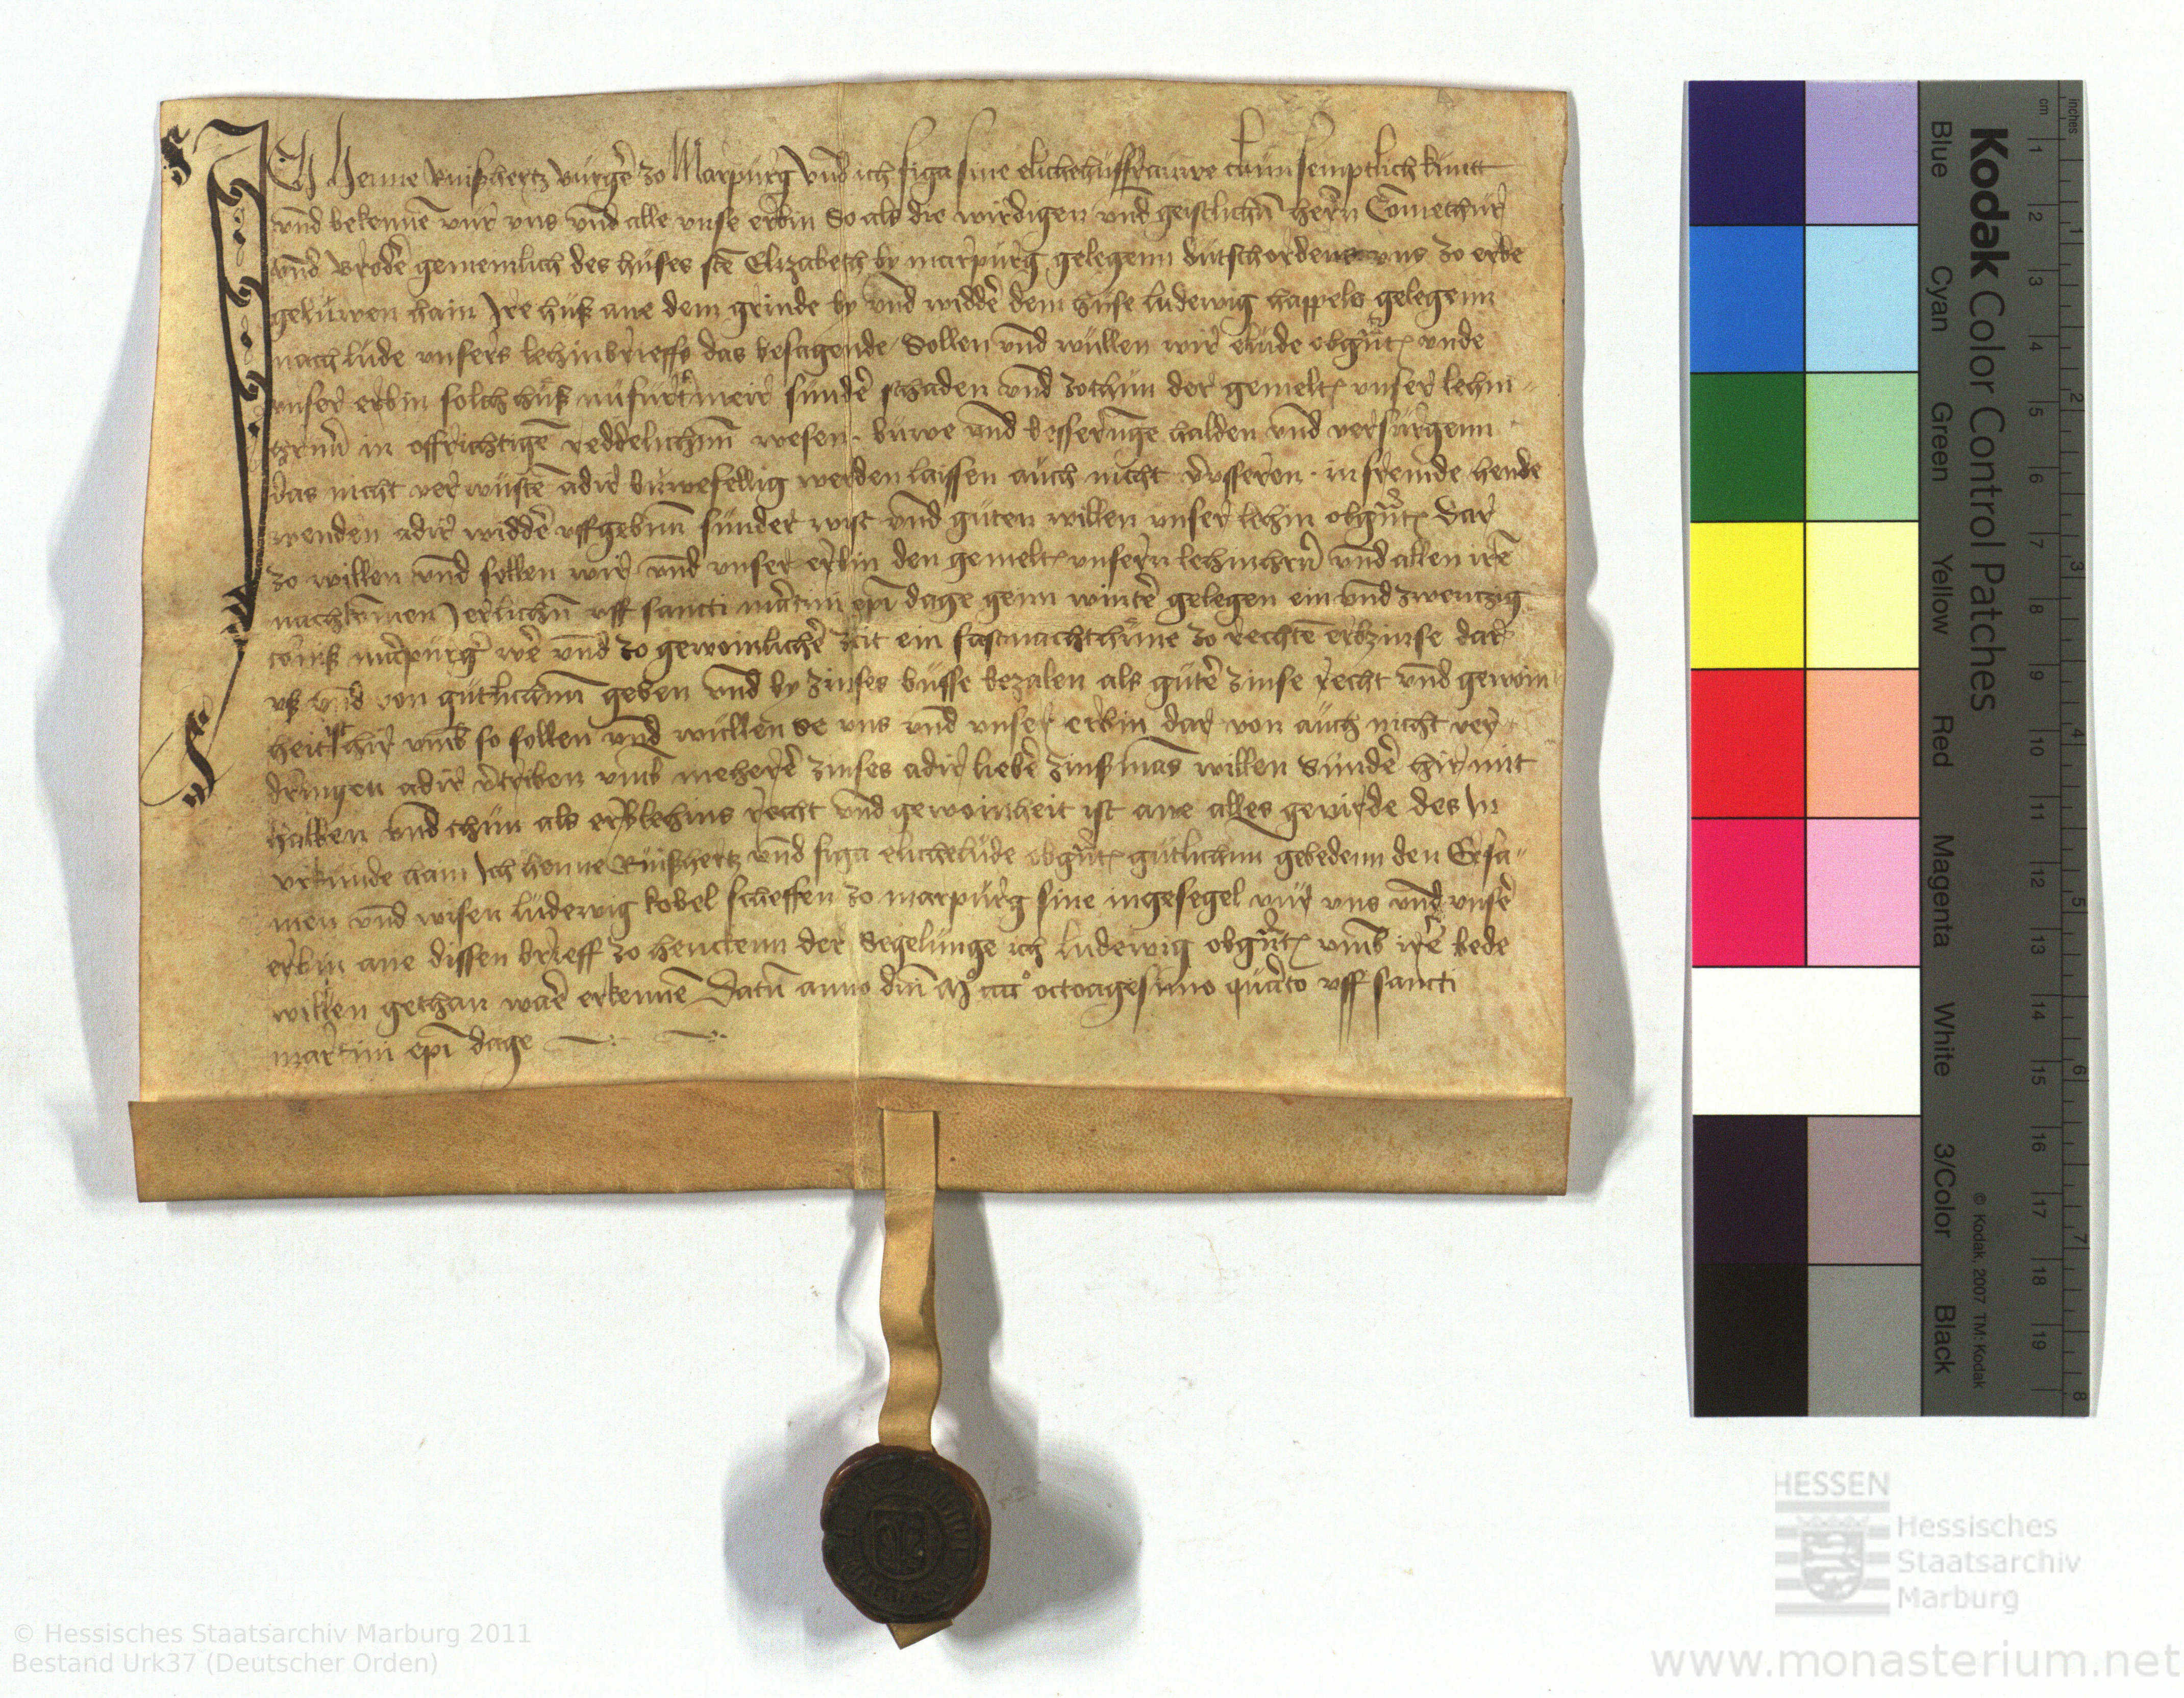 ICh Henne Ruißhertz burgẽ zo Marpurg vnd ich figa sine elichehusffrauwe thun semptlich kuntt
vnd bekennẽ vur vns vnd alle vnse erbin So als die wirdigen vnd geistlichñ herñ Cõmethur
vnd Brodẽ gemeinlich des huses stẽ Elizabeth by marpurg gelegenn dutschordens vns zo erbe
geluwen hain Ire huß ane dem grinde by vnd widdẽ dem huse ludewig happels gelegenn
nach lude vnsers lehinbrieffs das besagende Sollen vnd wullen wir elude obgñtẽ vnde
vnser erbin solch huß nu furt meir sundẽ schaden vnd zothun der gemeltẽ vnser lehin
hernñ in offrichtigẽ reddelichenn wesen buwe vnd besserunge halden vnd versurgenn
das nicht verwustẽ adir buwefellig werden laissen auch nicht vsseren in fremde hende
wenden adir widdẽ vffgebinn sunder wist vnd guten willen vnser lehin obgñtẽ Dar
zo willen vnd sollen wir vnd vnser erbin den gemeltẽ vnsern lehinhern vnd allen irẽ
nachkomen Ierlichñ vff sancti mertin epi dage genn wintẽ gelegen ein vnd zwentzig
torniß marpurg wẽ vnd zo gewoinlichẽ zit ein fasnachthune zo rechtẽ erbzinse dar
vß vnd von gutlichenn geben vnd by zinses busse bezalen als gutẽ zinse recht vnd gewoin
heit ist hir vmb so sollen vnd wullen se vns vnd vnser erbin dar von auch nicht ver
dringen adir vtriben vmb meherẽ zinses adir liebẽ zinßmãs willen Sundẽ hir mit
halden vnd thun als erblehins recht vnd gewoinheit ist ane alles geuerde des In
vrkunde hain Ich henne Ruißhertz vnd figa elichelude obgñtẽ gutlichnn gebedenn den Ersa
men vnd wisen ludewig kobel scheffen zo marpurg sine ingesegel vur vns vnd vnsẽ
erbin ane dissen brieff zo henckenn der Segelunge ich ludewig obgñtẽ vmb irẽ bede
willen gethan warẽ erkennẽ Datũ anno dñi Mº cccc º octoagesimo quarto vff sancti
martini epi dage
Kodak Color Control Patches
Blue Cyan Green Yellow Red Magenta White 3/Color Black
© Kodak, 2007 TM: Kodak
cm 1 2 3 4 5 6 7 8 9 10 11 12 13 14 15 16 17 18 19
inches 1 2 3 4 5 6 7 8
HESSEN
Hessisches
Staatsarchiv
Marburg
© Hessisches Staatsarchiv Marburg 2011
Bestand Urk37 (Deutscher Orden)
www.monasterium.net